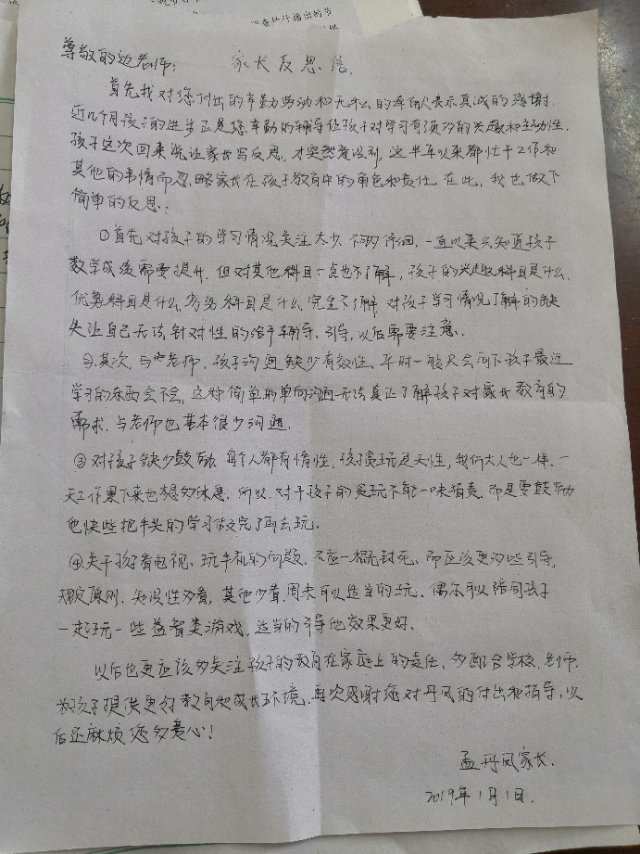 尊敬的边老师：
家长反思信
首先我对您付出的辛勤劳动和无私的奉献表示真诚的感谢.
近几个月孩子的进步正是您辛勤的辅导让孩子对学习有了更多的兴趣和主动性.
孩子这次回来说让家长写反思，才突然意识到，这半年以来都忙于工作和
其他的事情而忽略家长在孩子教育中的角色和责任。在此，我也做下
简单的反思：
①首先对孩子的学习情况关注太少. 一直以来只知道孩子
数学成绩需要提升，但对其他科目一点也不了解，孩子的兴趣科目是什么.
优势科目是什么，劣势科目是什么，完全不了解. 对孩子学习情况了解的缺
失让自己无法针对性的给予辅导、引导，以后需要注意.
②其次，与老师、孩子沟通缺少有效性、平时一般只会问下孩子最近
学习的东西会不会，这种简单的单向沟通无法真正了解孩子对家长教育的
需求. 与老师也基本很少沟通.
③对孩子缺少鼓励. 每个人都有惰性，孩子贪玩是天性，我们大人也一样，一
天工作累下来也想多休息. 所以，对于孩子的贪玩不能一味指责，而是要鼓励
他快些把手头的学习做完了再去玩.
④关于孩子看电视、玩手机的问题，不应一概封死，而应该更多些引导，
多看，其他少看，周末可以适当的玩，偶尔可以陪同孩子
一起玩一些益智类游戏，适当的引导也效果更好.
以后也更应该多关注孩子的教育在家庭上的责任，多配合学校、老师.
为孩子提供更好教育和成长环境. 再次感谢您对丹凤的付出和指导，以
后还麻烦您多费心！
孟丹凤家长.
2019年1月1日.